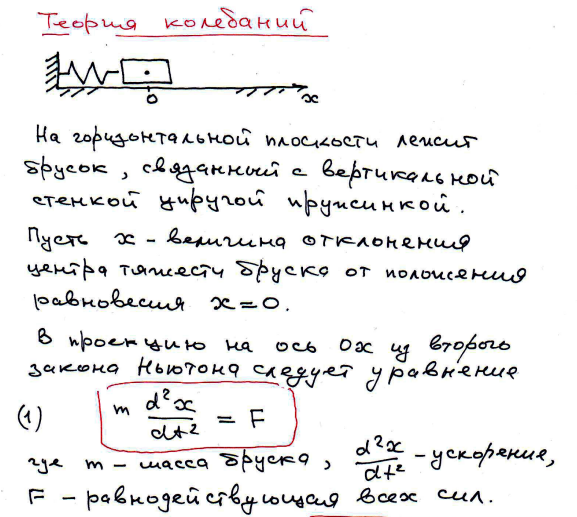 Теория колебаний
0 x
На горизонтальной плоскости лежит
брусок, связанный с вертикальной
стенкой упругой пружинкой.
Пусть x - величина отклонения
центра тяжести бруска от положения
равновесия x=0.
В проекцию на ось Ox из второго
закона Ньютона следует уравнение
(1) m d²x/dt² = F
где m - масса бруска, d²x/dt² - ускорение,
F - равнодействующая всех сил.